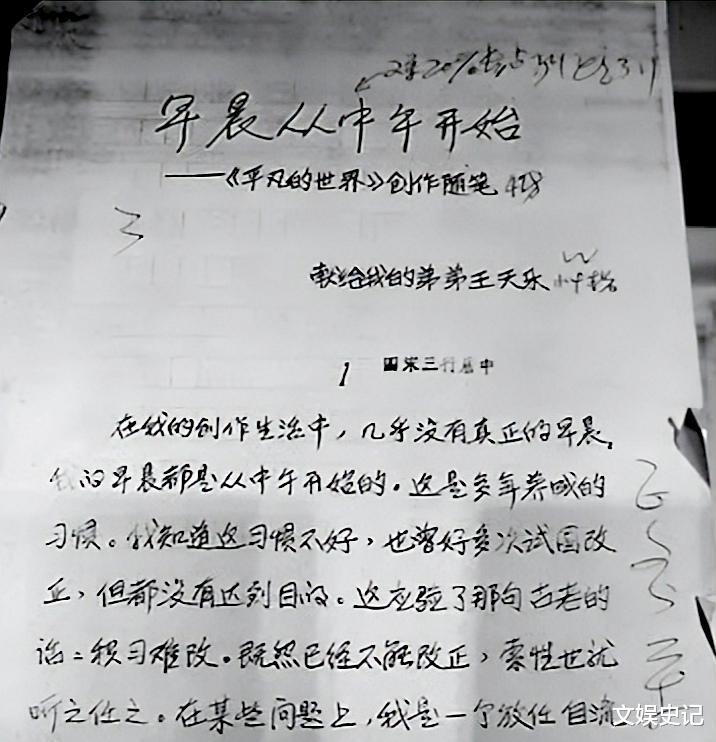 早晨从中午开始
——《平凡的世界》创作随笔
献给我的弟弟王天乐
1 四宋三行居中
在我的创作生活中，几乎没有真正的早晨。
我的早晨都是从中午开始的。这是多年养成的
习惯。我知道这习惯不好，也曾好多次试图改
正，但都没有达到目的。这应验了那句古老的
话：积习难改。既然已经不能改正，索性也就
听之任之。在某些问题上，我是一个放任自流
文娱史记